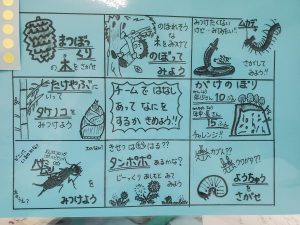 まつぼっ
くり
の木をさがせ
のぼれそう
な
木をみつけて
のぼって
みよう
みつけたくない
けど…みつけたい!!
ムカデ
さがして
みよう!!
たけやぶに
いって
タケノコを
みつけよう
チームではなし
あってなにを
するかきめよう!!
がけのぼり
10
15
チャレンジ!!
を
みつけよう
きせつは
タンポポ
あるかな?
じーっくりあしもとみて
みよう
カブ??
クワガタ??
ようちゅう
をさがせ